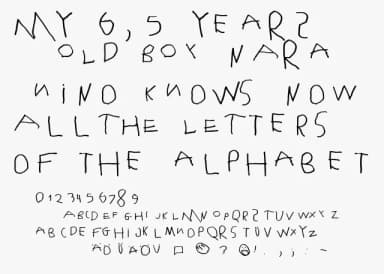 MY 6,5 YEARS
OLD BOY NARA
NINO KNOWS NOW
ALL THE LETTERS
OF THE ALPHABET
0 1 2 3 4 5 6 7 8 9
ABCD EF GHI JKLMN OPQRSTUVWXYZ
ABCDE FGHI JKLMNOPQRSTUVWXYZ
ÄÖÜÄÖÜ ? ! . , ; : -